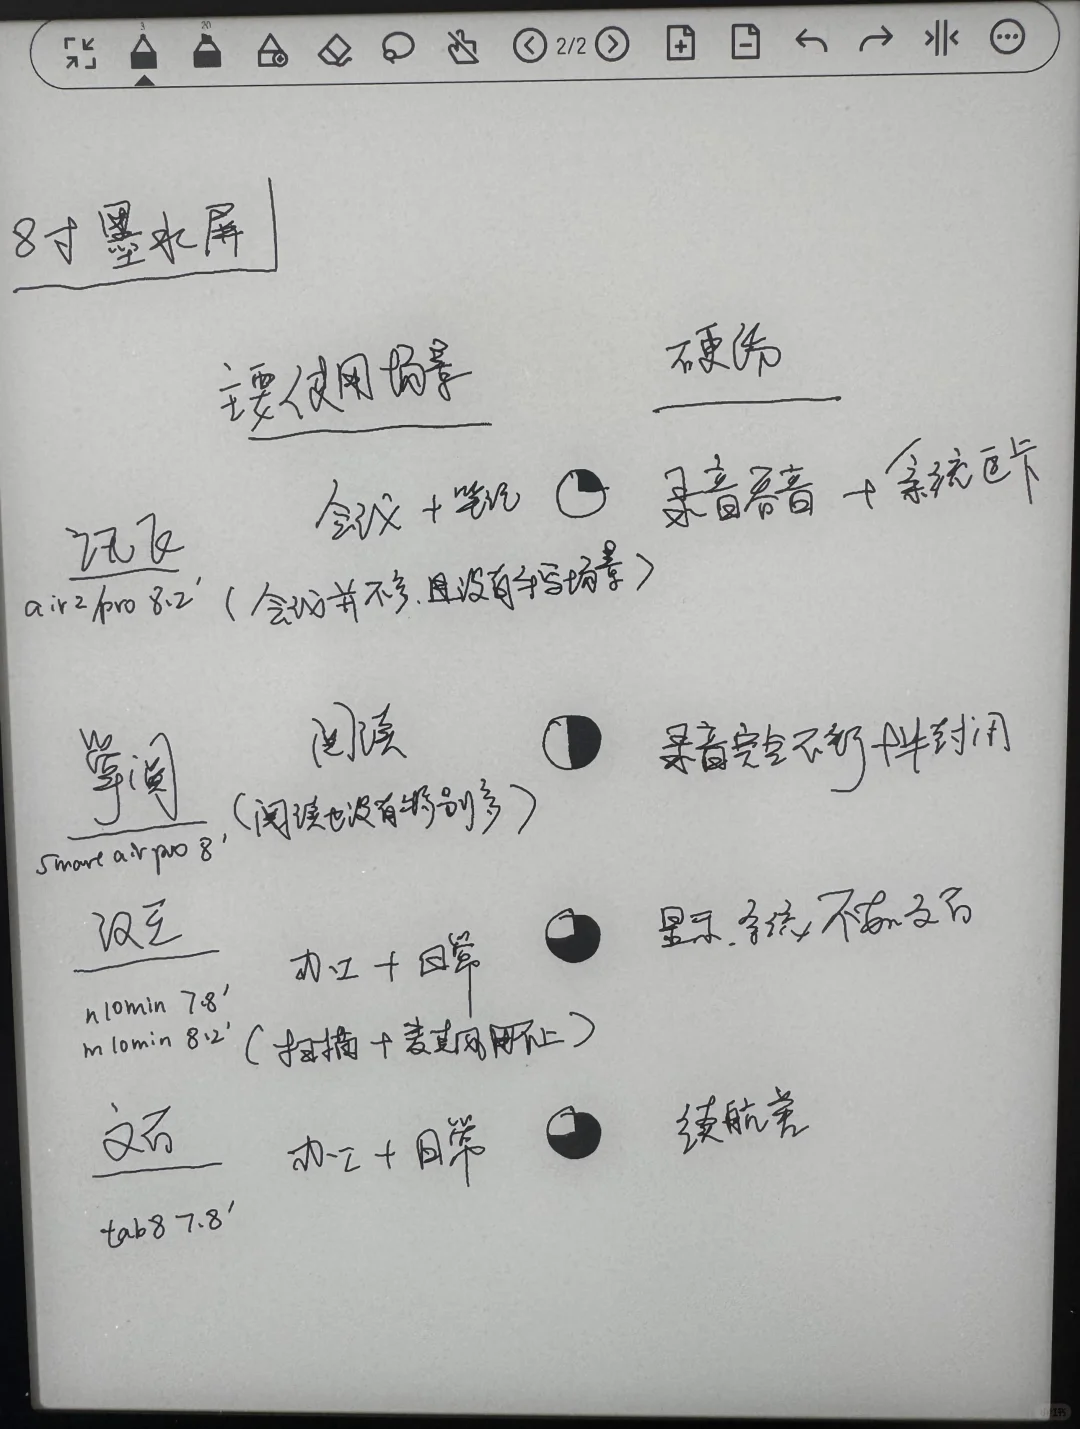 3 20
2/2
8寸墨水屏
主要使用场景 硬伤
讯飞 会议+笔记 录音杂音+系统巨卡
air2/pro 8.2' (会议并不多,且没有手写场景)
掌阅 阅读 录音完全不行+半封闭
smare air pro 8' (阅读也没有特别多)
汉王 办公+日常 显示、系统不如文石
n10min 7.8'
m10min 8.2' (扫描+麦克风用不上)
文石 办公+日常 续航差
tab8 7.8'